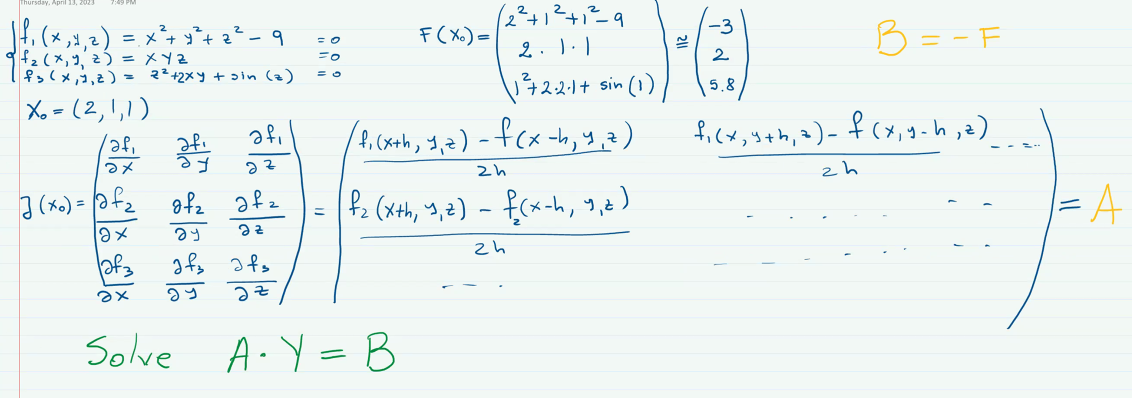 Thursday, April 13, 2023 7:49 PM
f₁(x,y,z) = x²+y²+z²-9 =0
f₂(x,y,z) = xyz =0
f₃(x,y,z) = z²+2xy+sin(z) =0
F(x₀) = (2²+1²+1²-9 ; 2·1·1 ; 1²+2·2·1+sin(1)) ≅ (-3 ; 2 ; 5.8)
B = -F
X₀ = (2,1,1)
J(x₀) = (∂f₁/∂x ∂f₁/∂y ∂f₁/∂z ; ∂f₂/∂x ∂f₂/∂y ∂f₂/∂z ; ∂f₃/∂x ∂f₃/∂y ∂f₃/∂z) = ((f₁(x+h,y,z) - f(x-h,y,z))/2h (f₁(x,y+h,z) - f(x,y-h,z))/2h ..... ; (f₂(x+h,y,z) - f₂(x-h,y,z))/2h ..... ; ....) = A
Solve A·Y = B